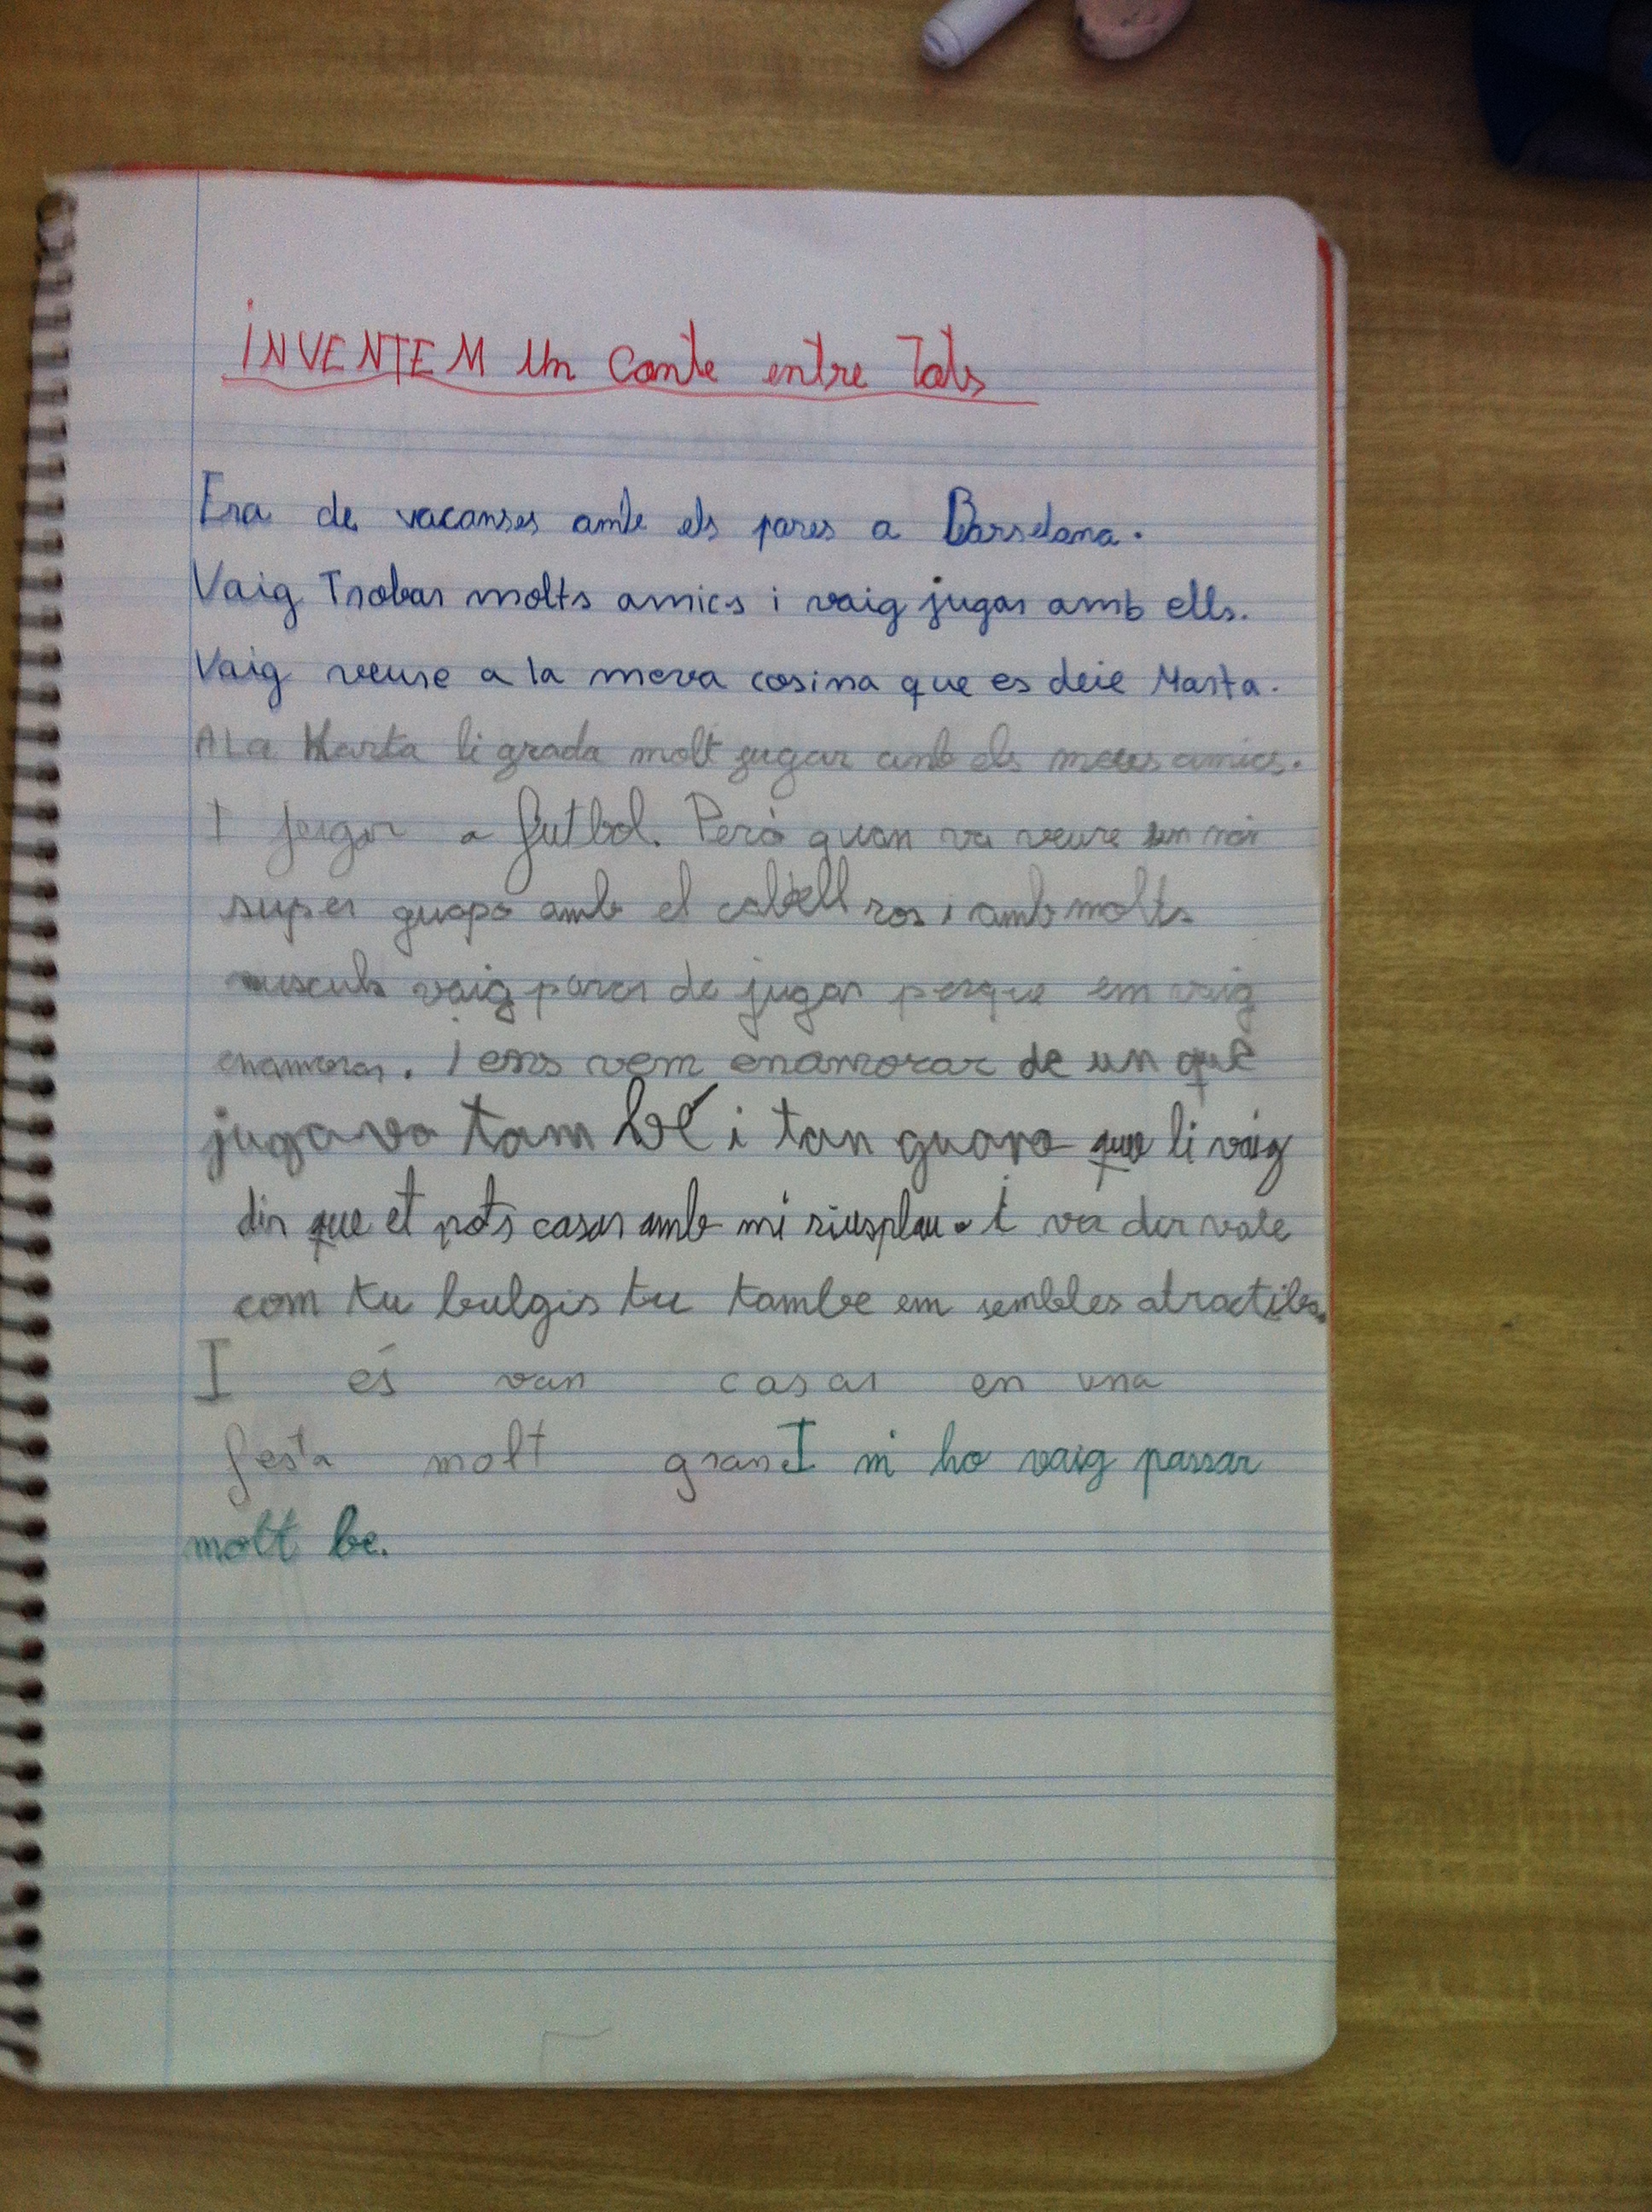 INVENTEM Un Conte entre Tots
Era de vacanses amb els pares a Barselona.
Vaig Trobar molts amics i vaig jugar amb ells.
Vaig veure a la meva cosina que es deie Marta.
A La Marta li grada molt jugar amb els meus amics.
I jugar a futbol. Però quan va veure un noi
super guapo amb el cabell ros i amb molts
musculs vaig parar de jugar perque em vaig
enamorar. i ens vem enamorar de un que
jugava tam bé i tan guapo que li vaig
dir que et pots casar amb mi siusplau. i va dir vale
com tu bulgis tu tambe em sembles atractiba.
I és van casar en una
festa molt gran. I m'ho vaig passar
molt be.